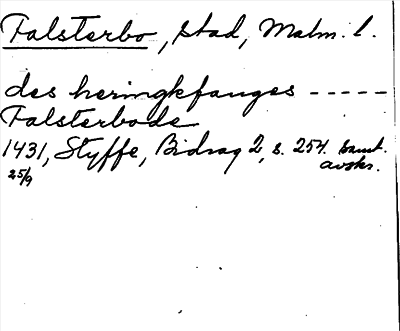 Falsterbo, stad, Malm. l.
des heringkfanges -----
Falsterbode
1431, Styffe, Bidrag 2, s. 254. samt.
25/9 avskr.